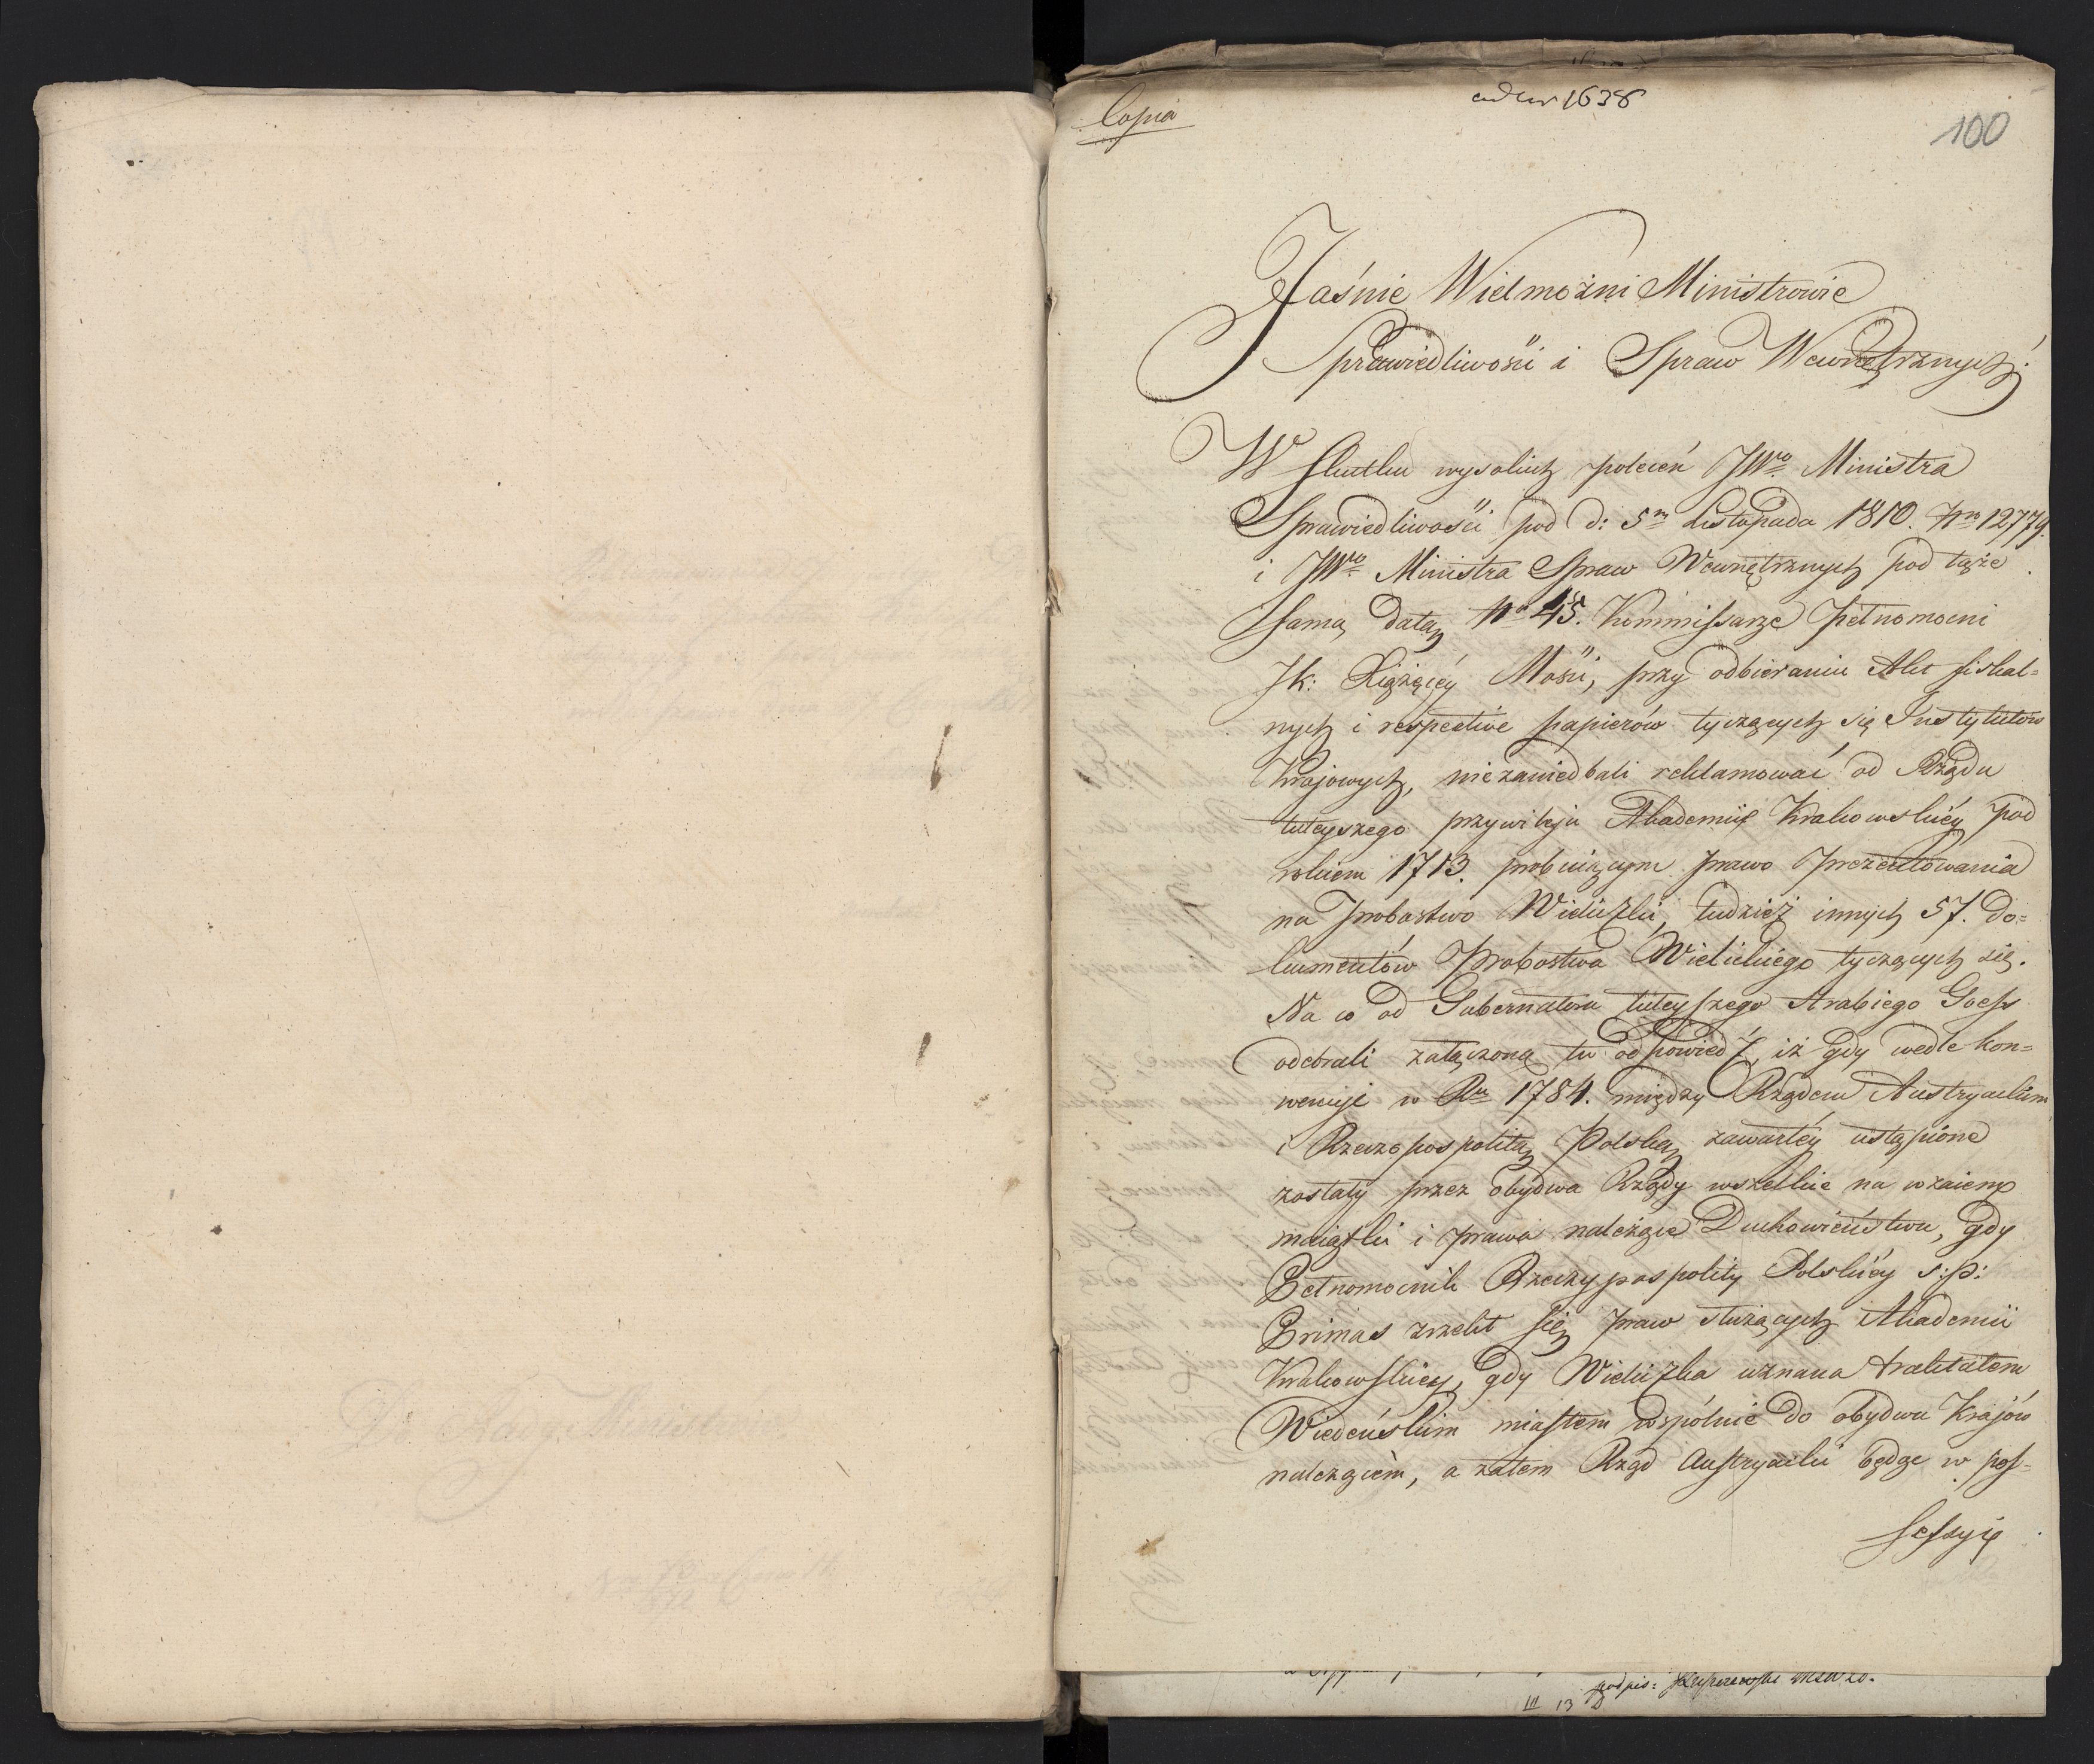 Copia
ad Nr 1638
100
Jaśnie Wielmożni Ministrowie
Sprawiedliwości i Spraw Wewnętrznych;
W skutku wysokich poleceń JWgo Ministra
Sprawiedliwości pod d: 5m Listopada 1810. Nro 12779.
i JWgo Ministra Spraw Wewnętrznych pod tąże
samą datą No 45. Kommissarze pełnomocni
JK: Xiążęcéy Mości, przy odbieraniu Akt fiskal=
nych i respective papierów tyczących się Instytutów
Krajowych, niezaniedbali reklamować od Rządu
tuteyszego przywileju Akademii Krakowskiéy pod
rokiem 1713. probuiącym prawo prezentowania
na probostwo Wieliczki, tudzież innych 57. do=
kumentów Probostwa Wielickiego tyczących się.
Na co od Gubernatora tuteyszego Hrabiego Goess
odebrali załączoną tu odpowiedź, iż gdy wedle kon=
wencyi w Rku 1784. między Rządem Austryackim
i Rzecząpospolitą Polską zawartéy ustąpione
zostały przez obydwa Rządy wszelkie na wzaiem
maiątki i prawa należące Duchowieństwu, gdy
Pełnomocnik Rzeczypospolity Polskiéy ś:p:
Primas zrzekł się praw służących Akademii
Krakowskiey, gdy Wieliczka uznana traktatem
Wiedeńskim miastem wspólnie do obydwu Krajów
należącém, a zatem Rząd Austryacki będąc w pos=
sessyi
podpis:
III 13
Do Rady Ministrów